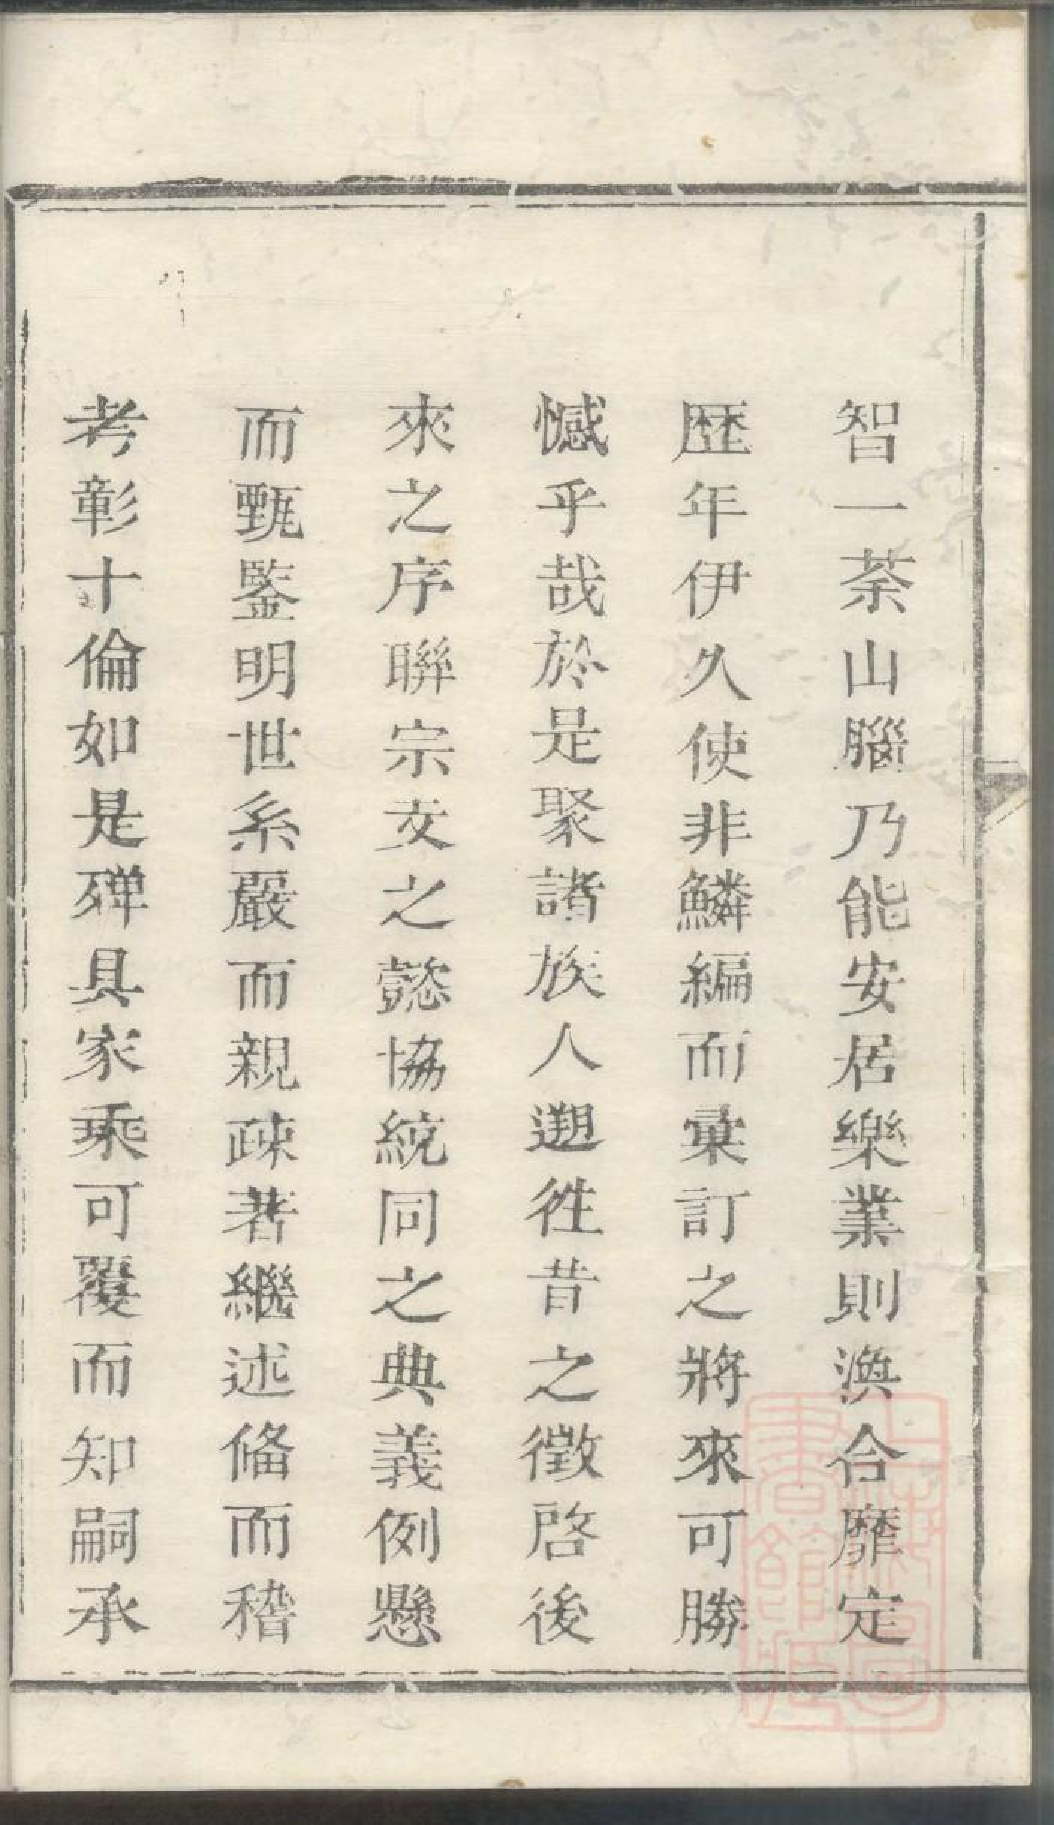 智一荼山腦乃能安居樂業則渙合靡定
歷年伊久使非鱗編而彙訂之將來可勝
憾乎哉於是聚諸族人遡徃昔之徵啓後
來之序聯宗支之懿協統同之典義例懸
而甄鑒明世系嚴而親疎著繼述俻而稽
考彰十倫如是殫具家乘可覆而知嗣承
上海圖書館藏